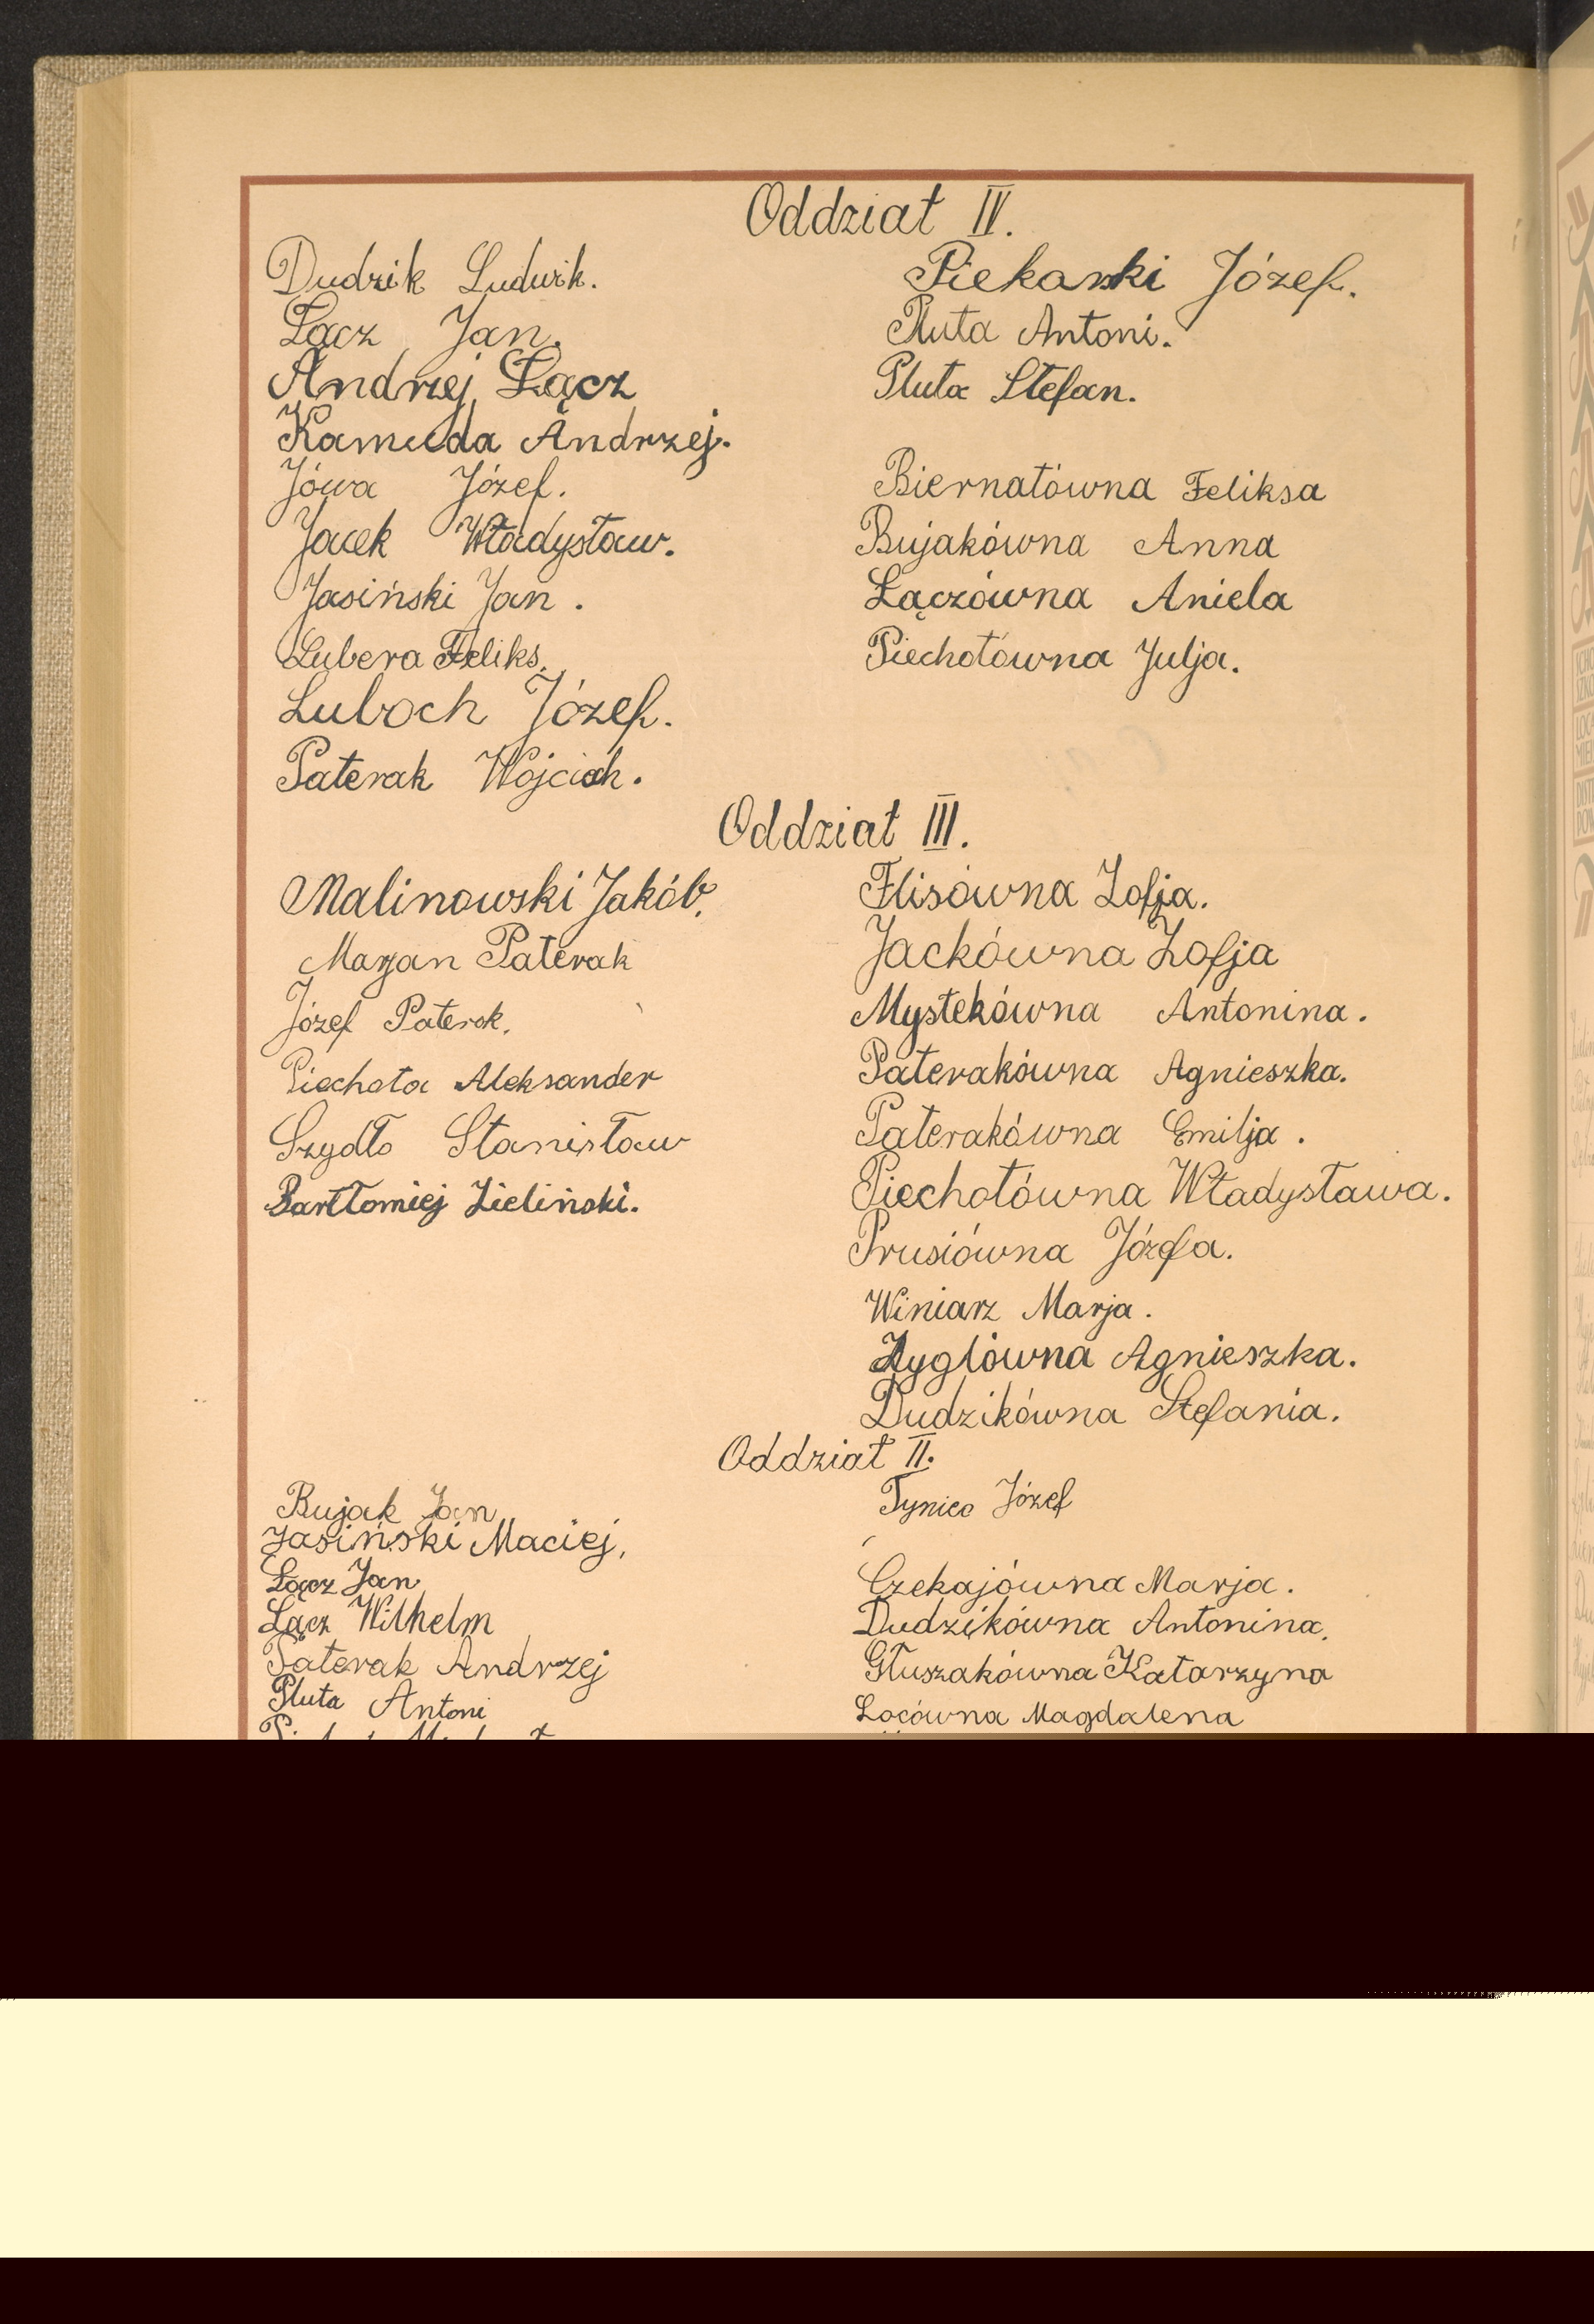 Oddział IV.
Dudzik Ludwik.
Łącz Jan.
Andrzej Łącz
Kamuda Andrzej.
Jówa Józef.
Jacek Władysław.
Jasiński Jan.
Lubera Feliks.
Luboch Józef.
Paterak Wojciech.
Piekarski Józef.
Pluta Antoni.
Pluta Stefan.
Biernatówna Feliksa
Bujakówna Anna
Łączówna Aniela
Piechotówna Julja.
Oddział III.
Malinowski Jakób.
Marjan Paterak
Józef Paterak.
Piechota Aleksander
Szydło Stanisław
Bartłomiej Zieliński.
Flisówna Zofja.
Jackówna Zofja
Mystekówna Antonina.
Paterakówna Agnieszka.
Paterakówna Emilja.
Piechotówna Władysława.
Prusiówna Józefa.
Winiarz Marja.
Zyglówna Agnieszka.
Dudzikówna Stefania.
Oddział II.
Bujak Jan
Jasiński Maciej,
Łącz Jan
Łącz Wilhelm
Paterak Andrzej
Pluta Antoni
Tyniec Józef
Czekajówna Marja.
Dudzikówna Antonina.
Głuszakówna Katarzyna
Locówna Magdalena